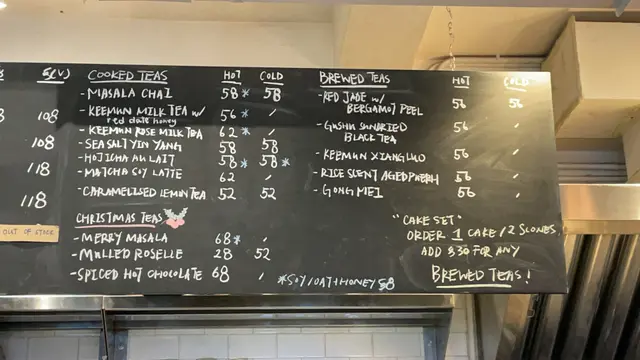 S(V)
108
108
118
118
OUT OF STOCK
COOKED TEAS HOT COLD
-MASALA CHAI 58* 58
-KEEMUN MILK TEA w/ 56* /
red date honey
-KEEMUN ROSE MILK TEA 62* /
-SEASALT YIN YANG 58 58
-HOJICHA AU LAIT 58* 58*
-MATCHA SOY LATTE 62 /
-CARAMELLISED LEMON TEA 52 52
CHRISTMAS TEAS
-MERRY MASALA 68* /
-MULLED ROSELLE 28 52
-SPICED HOT CHOCOLATE 68 /
*SOY/OAT+HONEY $8
BREWED TEAS HOT COLD
-RED JADE w/
BERGAMOT PEEL 56 56
-GUSHU SUNDRIED 56 /
BLACK TEA
-KEEMUN XIANGLUO 56 /
-RICE SCENT AGED PUERH 56 /
-GONG MEI 56 /
"CAKE SET"
ORDER 1 CAKE/2 SCONES,
ADD $30 FOR ANY
BREWED TEAS!